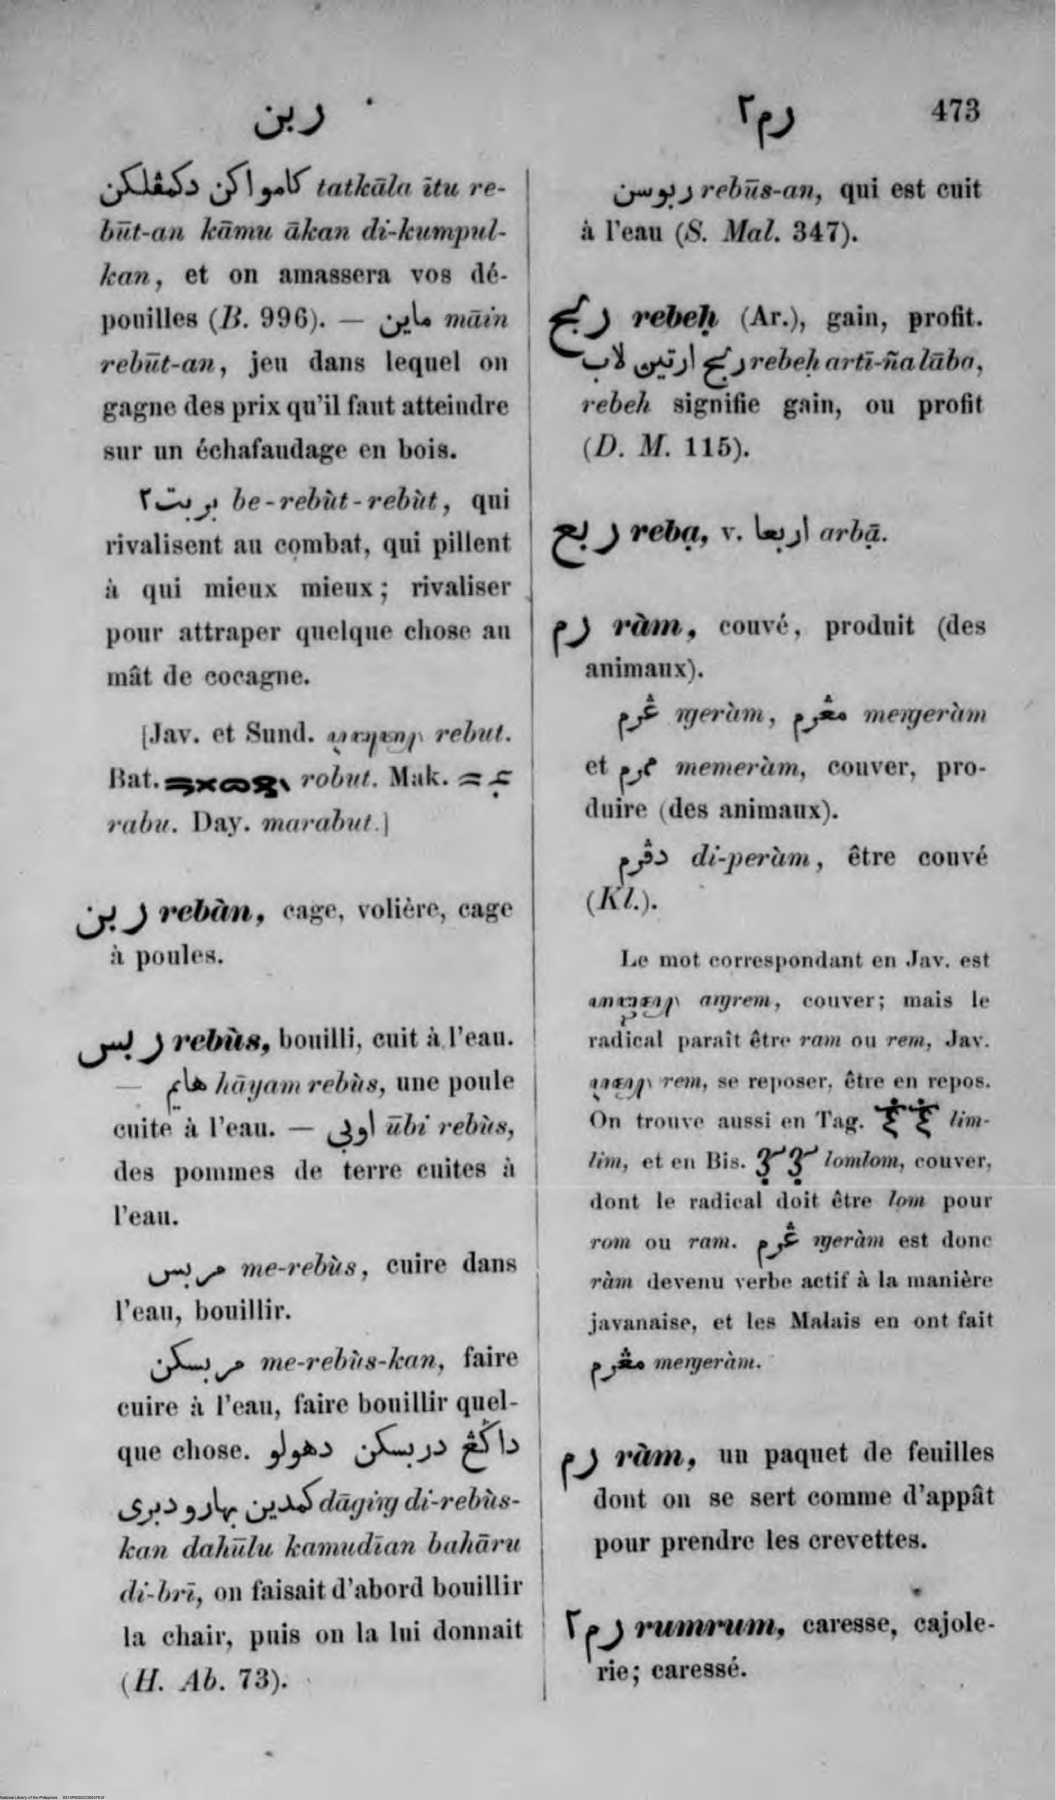 ربن
رم٢ 473
كامو اكن دكمڤلكن tatkāla ītu re-
būt-an kāmu ākan di-kumpul-
kan, et on amassera vos dé-
pouilles (B. 996). — ماين māin
rebūt-an, jeu dans lequel on
gagne des prix qu'il faut atteindre
sur un échafaudage en bois.
بربت٢ be-rebùt-rebùt, qui
rivalisent au combat, qui pillent
à qui mieux mieux; rivaliser
pour attraper quelque chose au
mât de cocagne.
[Jav. et Sund. rebut.
Bat. robut. Mak.
rabu. Day. marabut.]
ربن rebàn, cage, volière, cage
à poules.
ربس rebùs, bouilli, cuit à l'eau.
— هايم hāyam rebùs, une poule
cuite à l'eau. — اوبي ūbi rebùs,
des pommes de terre cuites à
l'eau.
مربس me-rebùs, cuire dans
l'eau, bouillir.
مربسكن me-rebùs-kan, faire
cuire à l'eau, faire bouillir quel-
que chose. داڬيڠ دربسكن دهولو
كمدين بهارو دبري dāging di-rebùs-
kan dahūlu kamudīan bahāru
di-brī, on faisait d'abord bouillir
la chair, puis on la lui donnait
(H. Ab. 73).
ربوسن rebūs-an, qui est cuit
à l'eau (S. Mal. 347).
ربح rebeḥ (Ar.), gain, profit.
ربح ارتين لاب rebeḥ artī-ña lāba,
rebeh signifie gain, ou profit
(D. M. 115).
ربع rebạ, v. اربعا arbạ̄.
رم ràm, couvé, produit (des
animaux).
ڠرم ngeràm, مڠرم mengeràm
et ممرم memeràm, couver, pro-
duire (des animaux).
دڤرم di-peràm, être couvé
(Kl.).
Le mot correspondant en Jav. est
angrem, couver; mais le
radical paraît être ram ou rem, Jav.
rem, se reposer, être en repos.
On trouve aussi en Tag. lim-
lim, et en Bis. lomlom, couver,
dont le radical doit être lom pour
rom ou ram. ڠرم ngeràm est donc
ràm devenu verbe actif à la manière
javanaise, et les Malais en ont fait
مڠرم mengeràm.
رم ràm, un paquet de feuilles
dont on se sert comme d'appât
pour prendre les crevettes.
رم٢ rumrum, caresse, cajole-
rie; caressé.